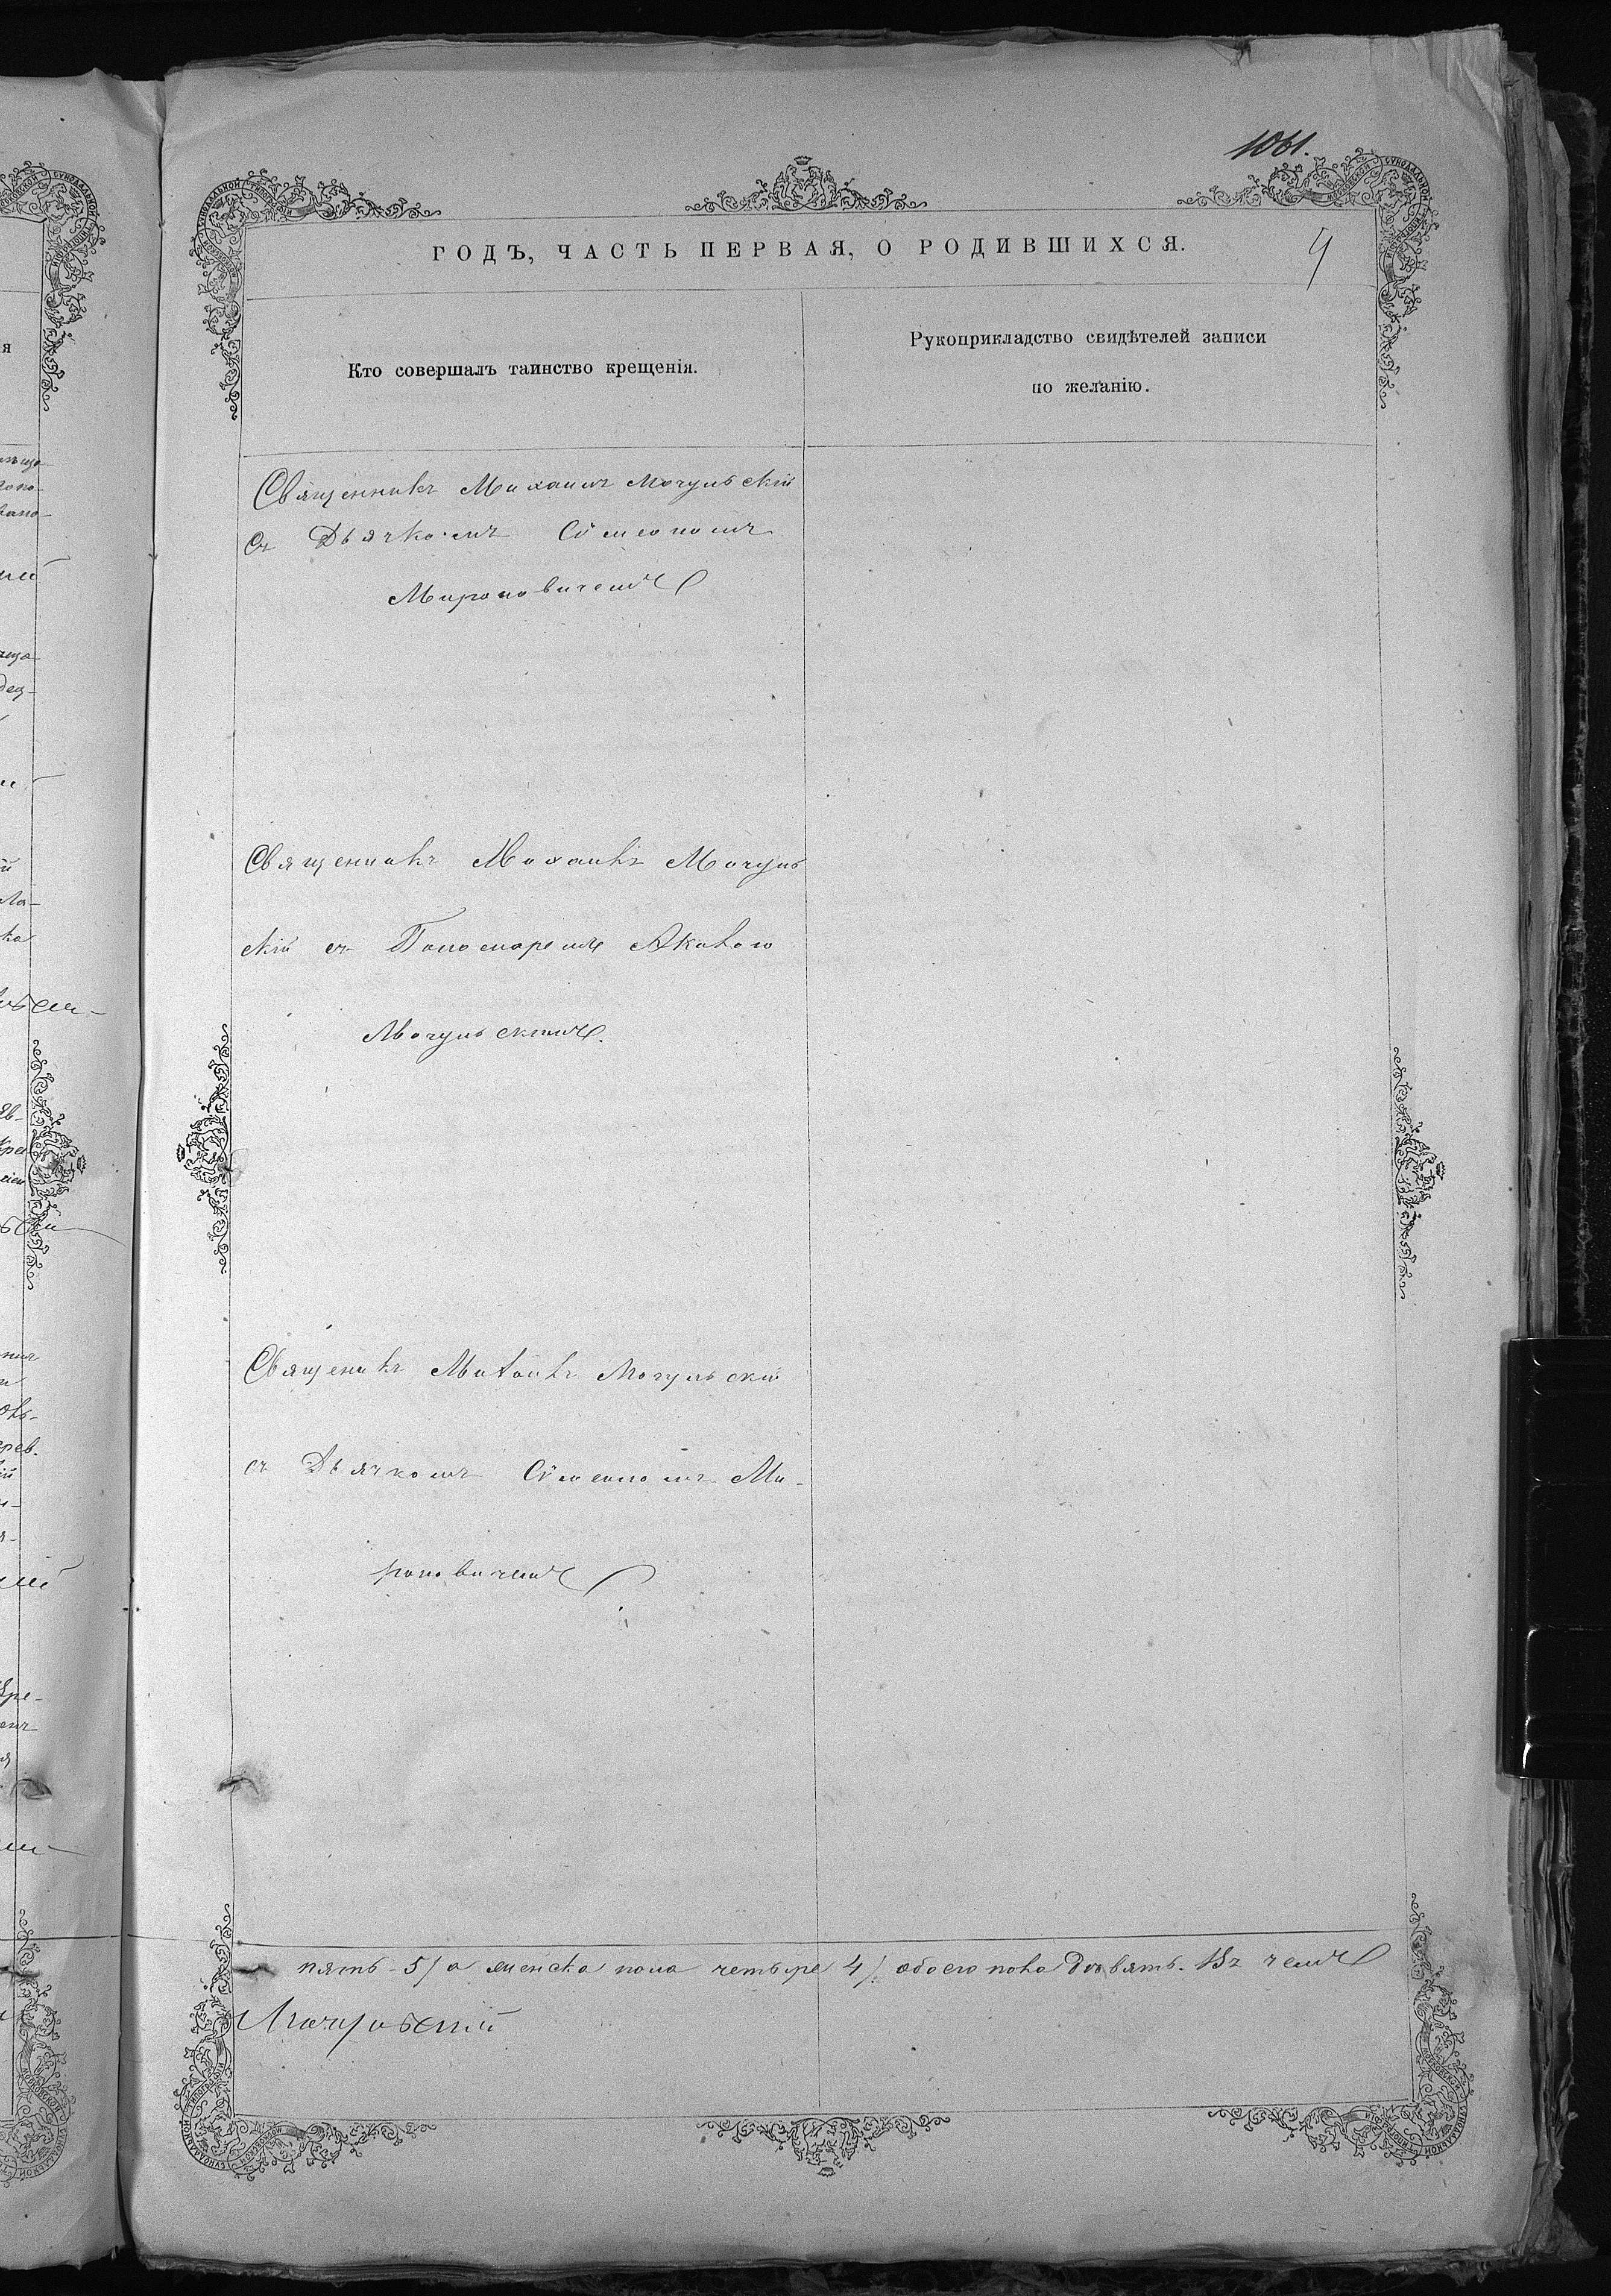 1061.
ГОДЪ, ЧАСТЬ ПЕРВАЯ, О РОДИВШИХСЯ.
9
Кто совершалъ таинство крещенія.
Рукоприкладство свидѣтелей записи
по желанію.
Священникъ Михаилъ Мочульскій
съ Дьячкомъ Сѵмеономъ
Мироновичемъ
Священникъ Михаилъ Мочуль
скій съ Пономаремъ Яковою
Мочульскимъ.
Священикъ Михаилъ Мочульскій
съ Дьячкомъ Сѵмеономъ Ми-
роновичемъ
пять - 5/ а женска пола четыре 4/. обоего пола девять. Въ чемъ
Мочульскій